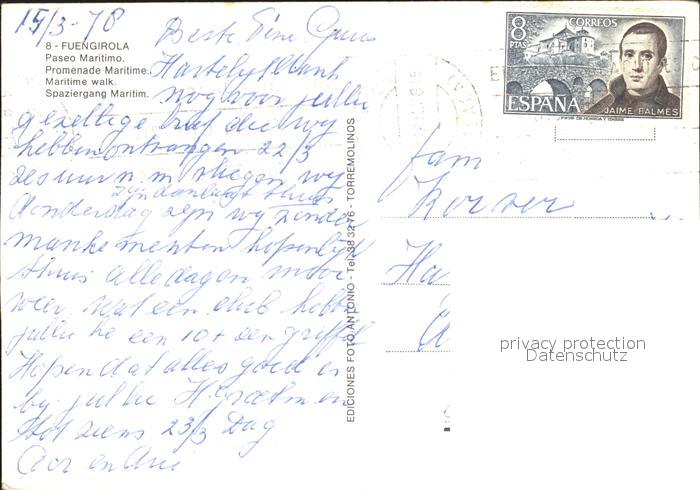 15/3-78
8 - FUENGIROLA
Paseo Maritimo.
Promenade Maritime.
Maritime walk.
Spaziergang Maritim.
Beste Fine
Hartelijk dank
nog voor jullie
gezellige brief die wy
hebben ontvangen 22/3
zes uur n.m. vliegen wy
Donderdag zyn wy zonder
mankementen hopenlijk
thuis alle dagen mooi
weer. Wat een club hebben
jullie he een 10+ een griffel
Hopen dat alles goed is
by jullie
tot ziens 23/3 Dag
Cor en
EDICIONES FOTO ANTONIO - Tel. 38 32 76 - TORREMOLINOS
8 PTAS
CORREOS
ESPAÑA
JAIME BALMES
fam
Korver
Ha
A
privacy protection
Datenschutz